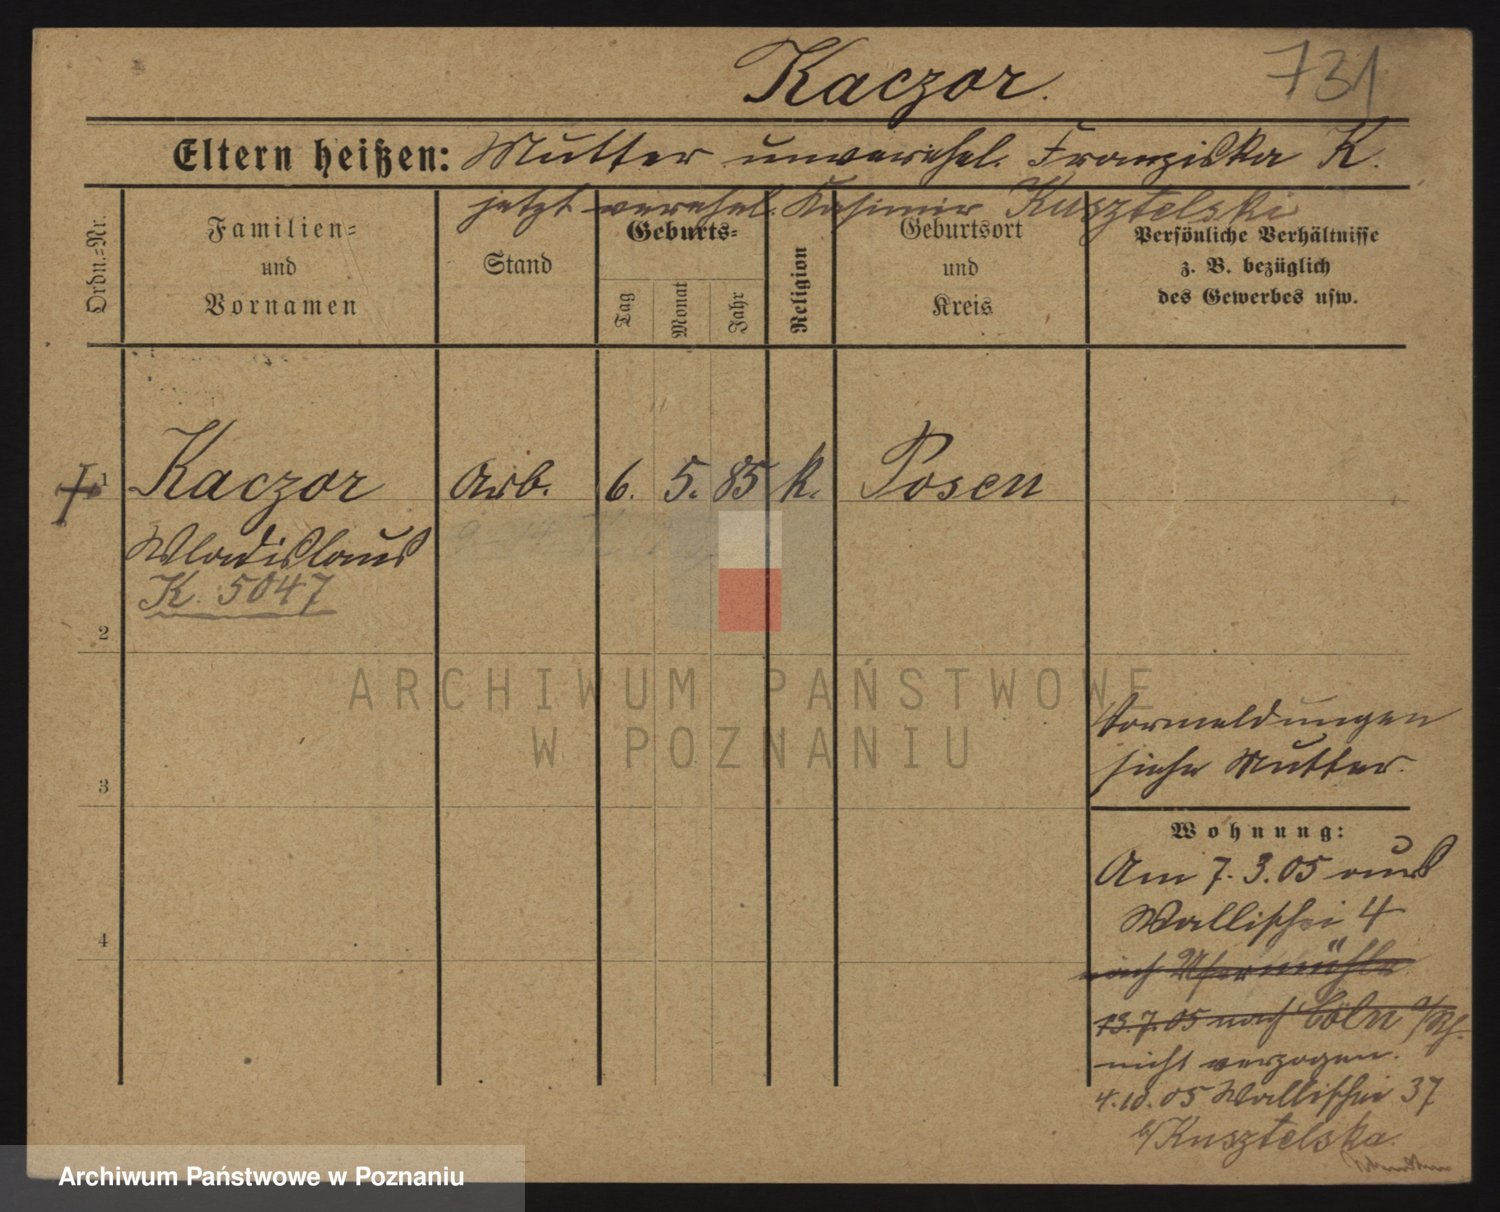 Kaczor.
731
Eltern heißen: Mutter unverehel. Franziska K.
jetzt verehel. Kasimir Kusztelski
Ordn.-Nr.
Familien-
und
Vornamen
Stand
Geburts-
Tag
Monat
Jahr
Religion
Geburtsort
und
Kreis
Persönliche Verhältnisse
z. B. bezüglich
des Gewerbes usw.
1 Kaczor Arb. 6. 5. 85 k. Posen
Wladislaus
K. 5047
2
ARCHIWUM PAŃSTWOWE
W POZNANIU
Vormeldungen
siehe Mutter.
3
Wohnung:
Am 7.3.05 aus
Wallischei 4
4
nach
13.7.05 nach Cöln a/Rh.
nicht verzogen.
4.10.05 Wallischei 37
b/Kusztelska.
Archiwum Państwowe w Poznaniu